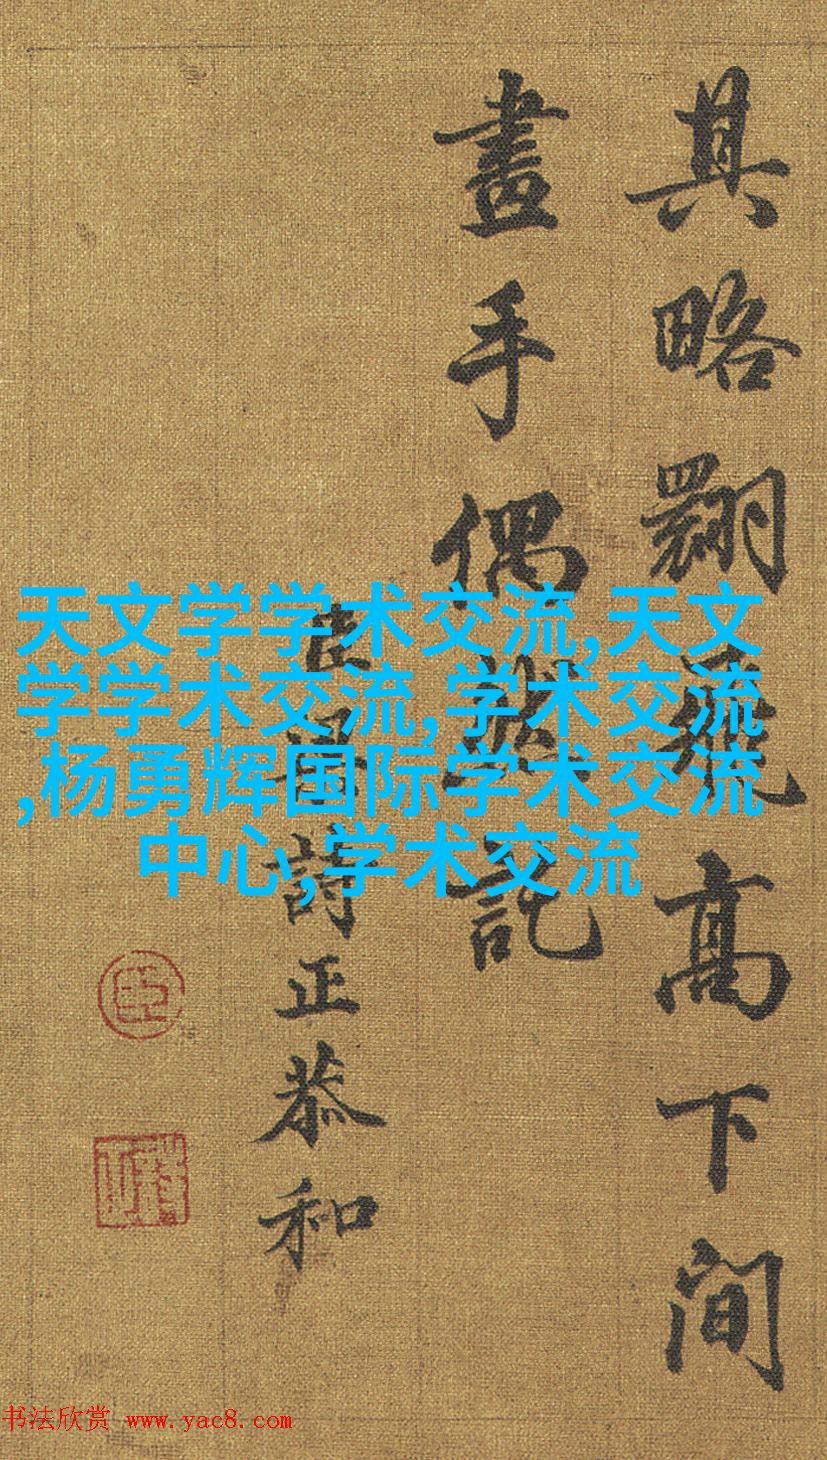 其略翾飛高下間
畫手偶然託
臣梁詩正恭和
天文学学术交流,天文
学学术交流,学术交流
,杨勇辉国际学术交流
中心,学术交流
臣
书法欣赏 www.yac8.com